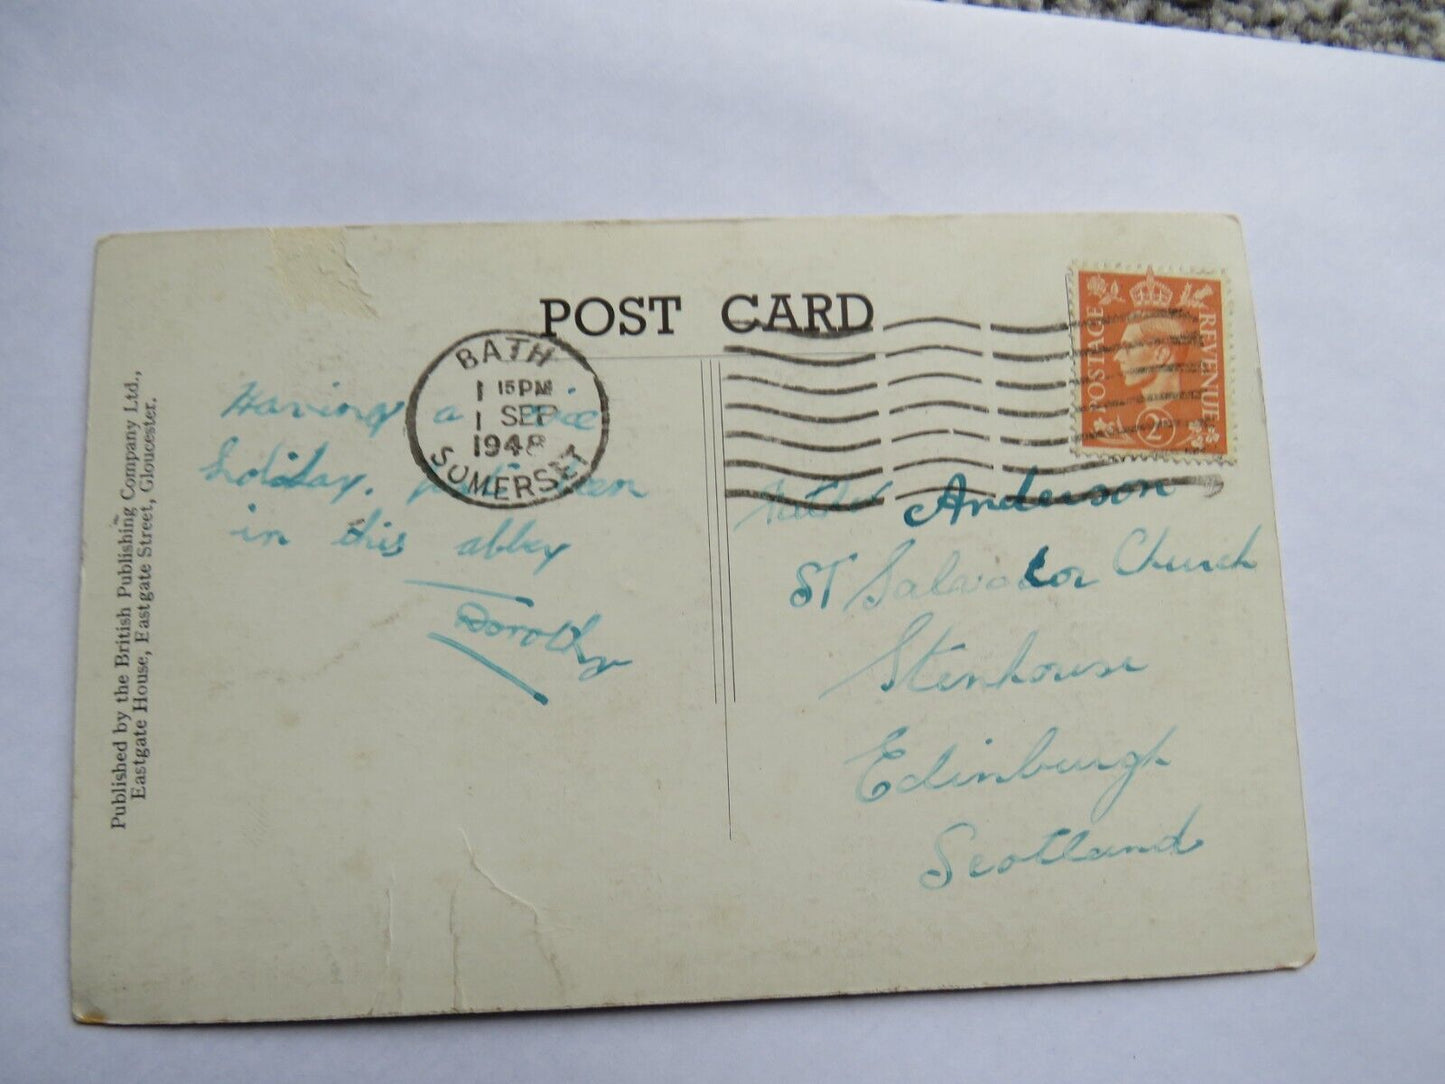 POST CARD
BATH
1 15 PM
1 SEP
1948
SOMERSET
POSTAGE
REVENUE
2D
Having a nice
holiday. been
in this abbey
Dorothy
Father Anderson
ST Salvator Church
Stenhouse
Edinburgh
Scotland
Published by the British Publishing Company Ltd.,
Eastgate House, Eastgate Street, Gloucester.